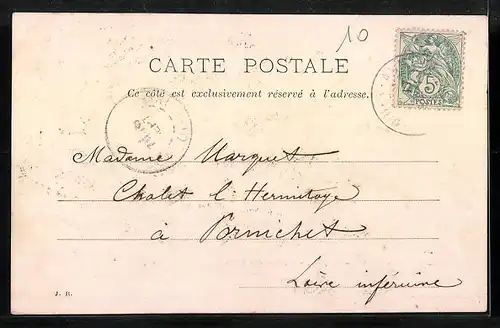 10
CARTE POSTALE
Ce côté est exclusivement réservé à l'adresse.
5
POSTES
Madame Marquet
Chalet l'Hermitage
à Pornichet
Loire inférieure
J. R.